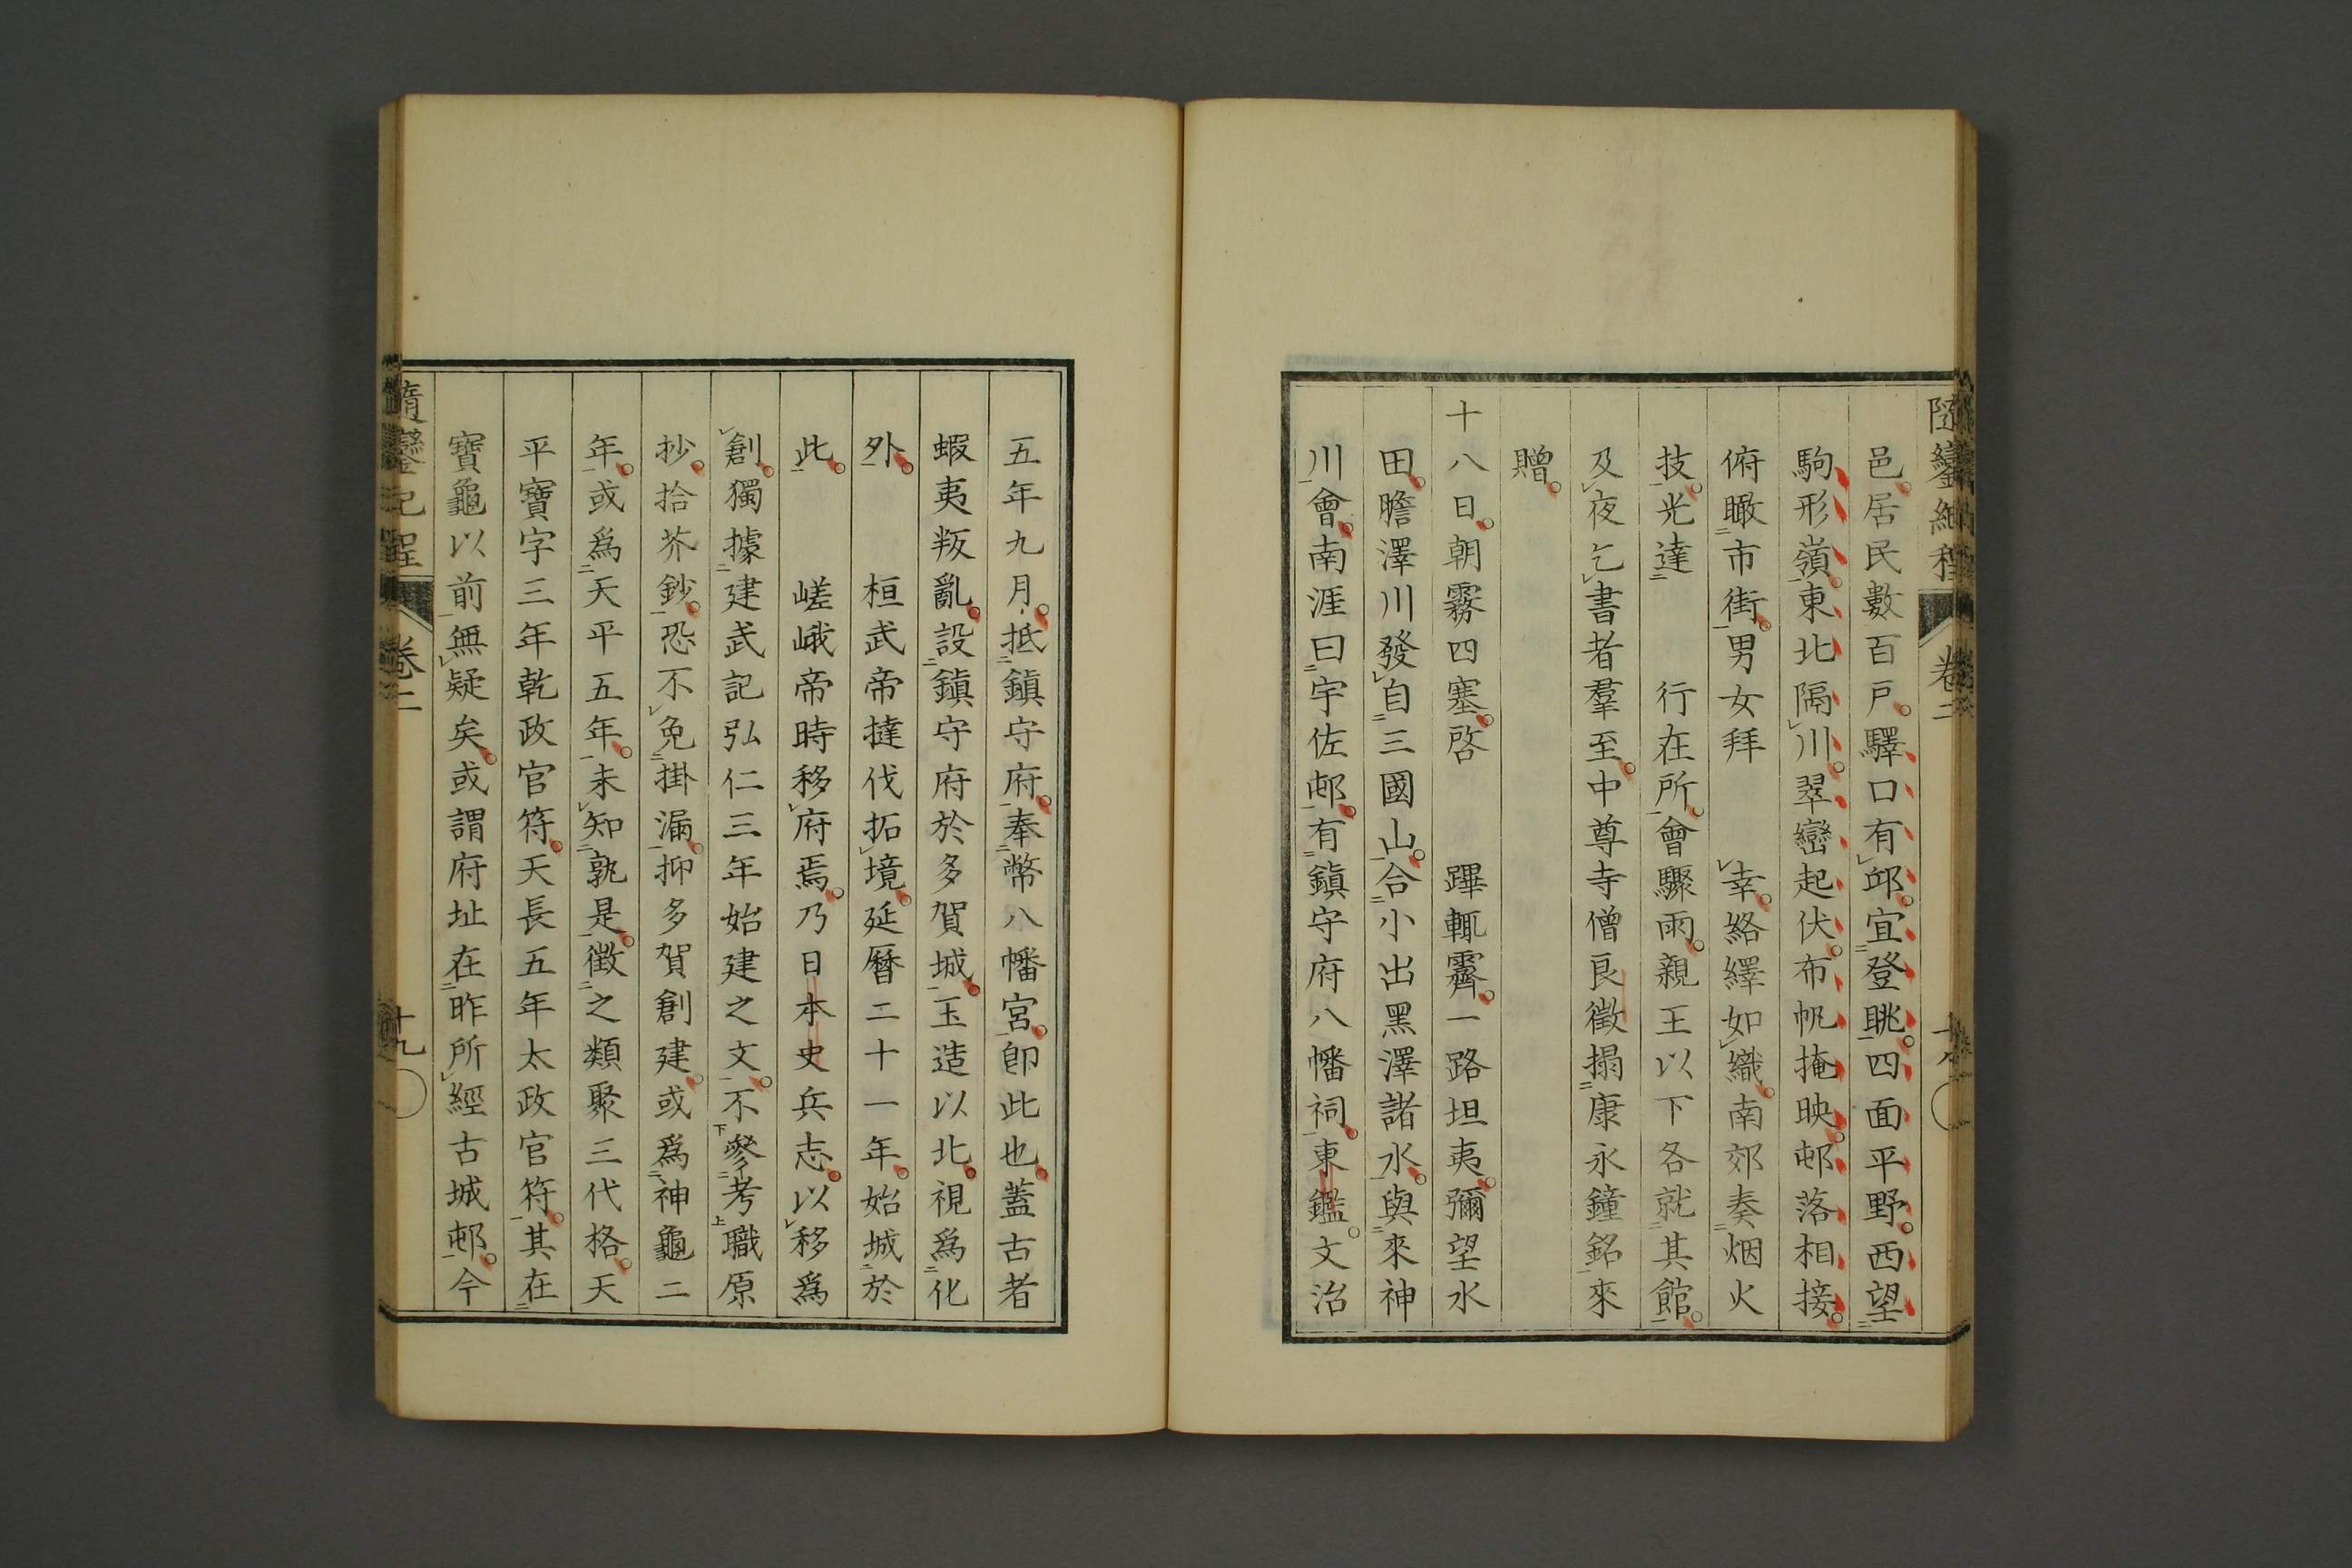 隨鑾紀程 卷二 十八
邑。居民數百戶。驛口有邱。宜登眺。四面平野。西望
駒形嶺。東北隔川。翠巒起伏。布帆掩映。邨落相接。
俯瞰市街。男女拜 幸。絡繹如織。南郊奏烟火
技。光達 行在所。會驟雨。親王以下各就其館。
及夜乞書者羣至。中尊寺僧良徵搨康永鐘銘來
贈。
十八日。朝霧四塞。啓 蹕輒霽。一路坦夷。彌望水
田。膽澤川發自三國山。合小出黑澤諸水。與來神
川會。南涯曰宇佐邨。有鎮守府八幡祠。東鑑。文治
五年九月。抵鎮守府。奉幣八幡宮。卽此也。蓋古者
蝦夷叛亂。設鎮守府於多賀城。玉造以北。視爲化
外。 桓武帝撻伐拓境。延曆二十一年。始城於
此。 嵯峨帝時移府焉。乃日本史兵志。以移爲
創。獨據建武記弘仁三年始建之文。不參考職原
抄。拾芥鈔。恐不免掛漏。抑多賀創建。或爲神龜二
年。或爲天平五年。未知孰是。徵之類聚三代格。天
平寶字三年乾政官符。天長五年太政官符。其在
寶龜以前無疑矣。或謂府址在昨所經古城邨。今
隨鑾紀程 卷二 十九